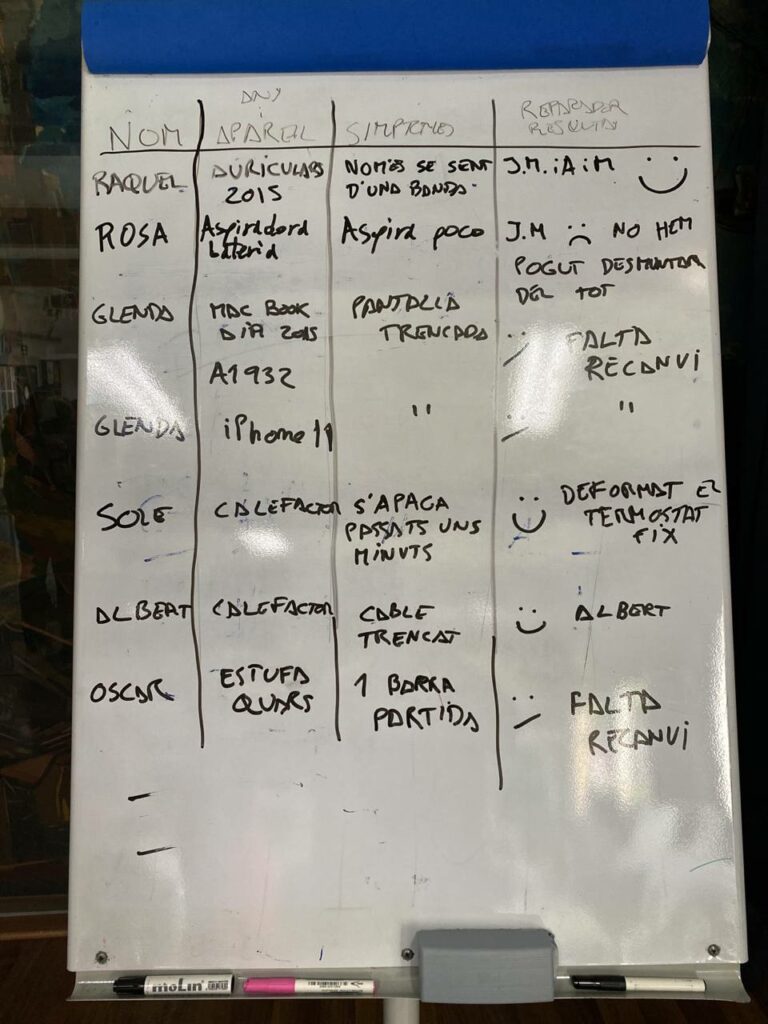 NOM
ANY
i
APARELL
SIMPTOMES
REPARADOR
RESULTAT
RAQUEL
AURICULARS
2015
NOMÉS SE SENT
D'UNA BANDA.
J.M. i A i M
ROSA
Aspiradora
bateria
Aspira poco
J.M
NO HEM
POGUT DESMUNTAR
DEL TOT
GLENDA
MAC BOOK
AIR 2015
A1932
PANTALLA
TRENCADA
FALTA
RECANVI
GLENDA
iPhone 11
"
"
SOLE
CALEFACTOR
S'APAGA
PASSATS UNS
MINUTS
DEFORMAT EL
TERMOSTAT
FIX
ALBERT
CALEFACTOR
CABLE
TRENCAT
ALBERT
OSCAR
ESTUFA
QUARS
1 BARRA
PARTIDA
FALTA
RECANVI
moLin